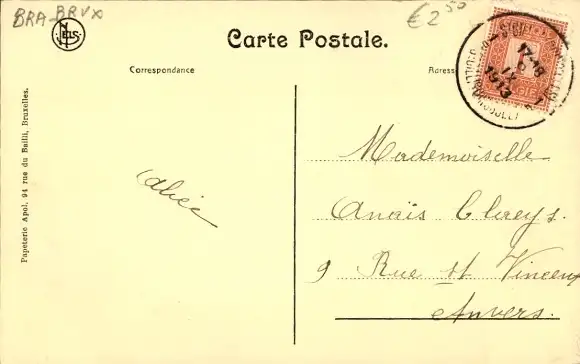 BRA-BRUX
€2 50
NELS
Carte Postale.
Correspondance
Adress
17-18
IX
1913
Papeterie Apol, 94 rue du Bailli, Bruxelles.
Alice
Mademoiselle
Anaïs Claeys.
9 Rue St Vincent
Anvers.